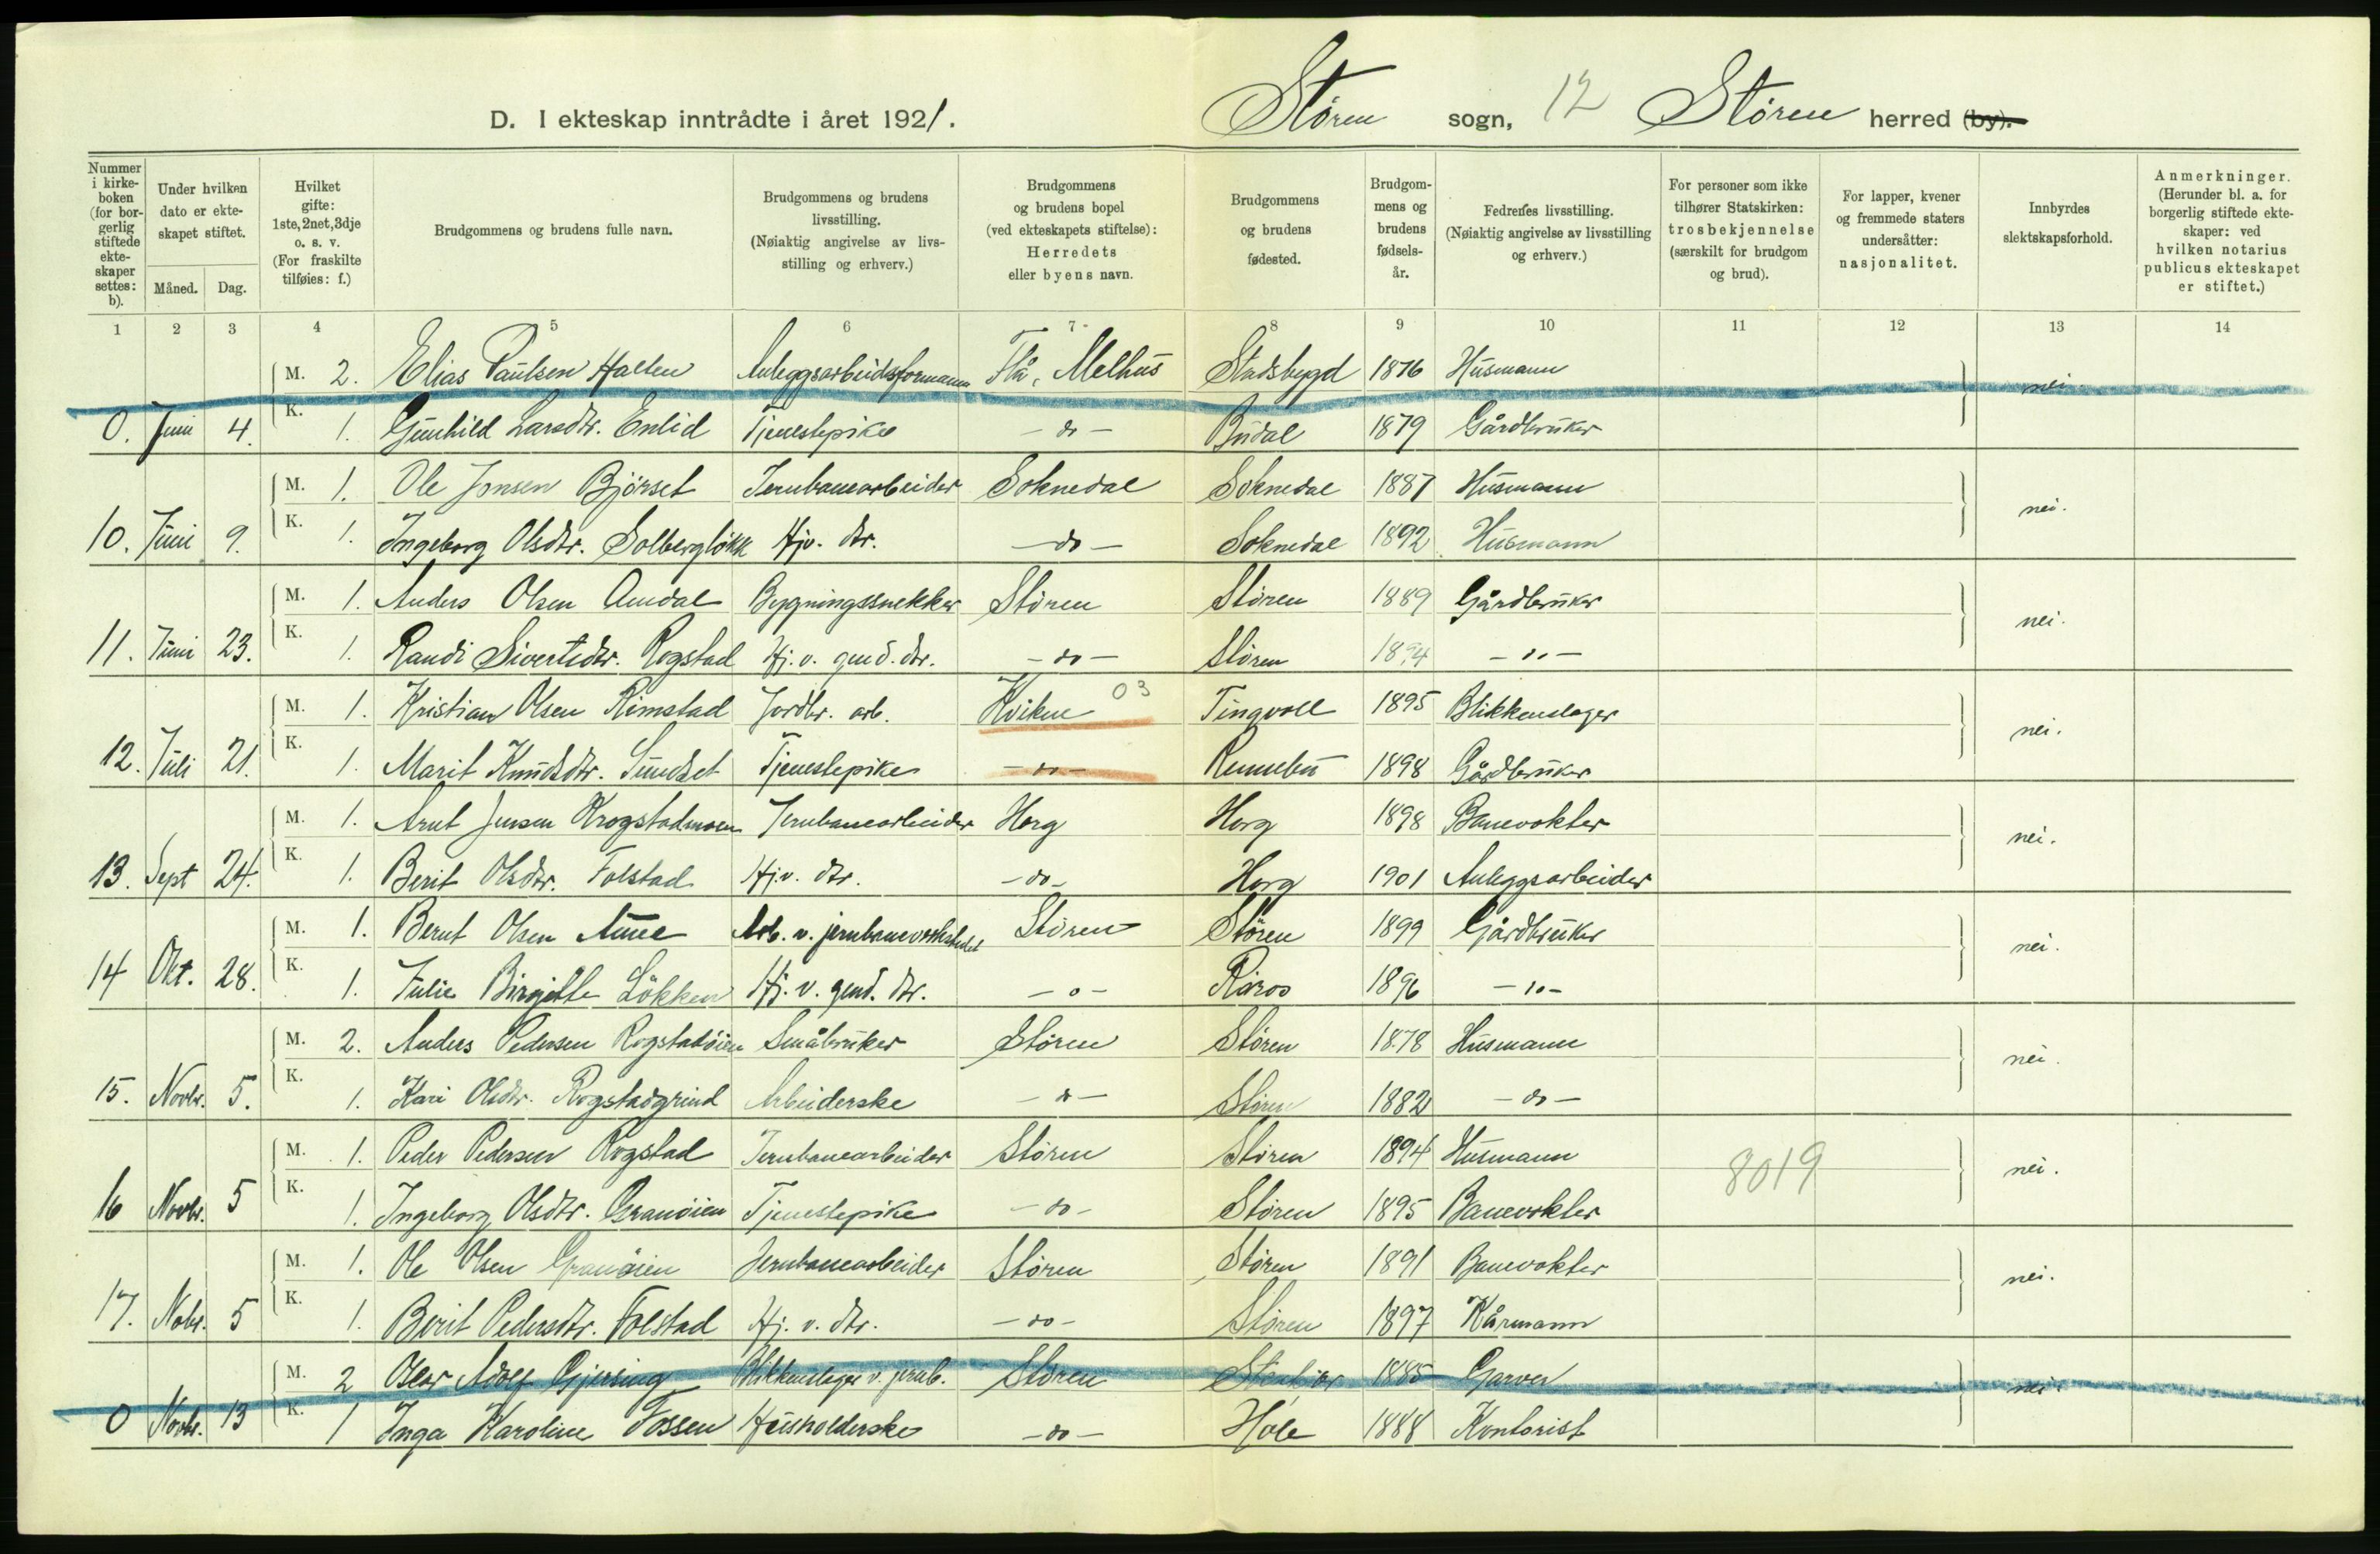 D. I ekteskap inntrådte i året 1921. Støren sogn, 12 Støren herred (by).
Nummer i kirkeboken (for borgerlig stiftede ekteskaper settes: b).
Under hvilken dato er ekteskapet stiftet.
Måned. Dag.
Hvilket gifte: 1ste, 2net, 3dje o. s. v. (For fraskilte tilføies: f.)
Brudgommens og brudens fulle navn.
Brudgommens og brudens livsstilling. (Nøiaktig angivelse av livsstilling og erhverv.)
Brudgommens og brudens bopel (ved ekteskapets stiftelse): Herredets eller byens navn.
Brudgommens og brudens fødested.
Brudgommens og brudens fødselsår.
Fedrenes livsstilling. (Nøiaktig angivelse av livsstilling og erhverv.)
For personer som ikke tilhører Statskirken: trosbekjennelse (særskilt for brudgom og brud).
For lapper, kvener og fremmede staters undersåtter: nasjonalitet.
Innbyrdes slektskapsforhold.
Anmerkninger. (Herunder bl. a. for borgerlig stiftede ekteskaper: ved hvilken notarius publicus ekteskapet er stiftet.)
1 2 3 4 5 6 7 8 9 10 11 12 13 14
M. 2. Elias Paulsen Halten Anleggsarbeidsformann Flå, Melhus Stadsbygd 1876 Husmann nei
0. Juni 4. K. 1. Gunhild Larsdtr. Enlid Tjenestepike - do - Budal 1879 Gårdbruker
M. 1. Ole Jonsen Bjørset Jernbanearbeider Soknedal Soknedal 1887 Husmann nei.
10. Juni 9. K. 1. Ingeborg Olsdtr. Solbergløkk Hjv. dtr. - do - Soknedal 1892 Husmann
M. 1. Anders Olsen Amdal Bygningssnekker Støren Støren 1889 Gårdbruker nei.
11. Juni 23. K. 1. Randi Sivertsdtr. Rogstad Hj. v. gmd. dtr. - do - Støren 1894 - " -
M. 1. Kristian Olsen Rimstad Jordbr. arb. Kvikne 03 Tingvoll 1895 Blikkenslager nei.
12. Juli 21. K. 1. Marit Knudsdtr. Sundset Tjenestepike - do - Rennebu 1898 Gårdbruker
M. 1. Arnt Jensen Krogstadmoen Jernbanearbeider Horg Horg 1898 Banevokter nei.
13. Sept 24. K. 1. Berit Olsdtr. Folstad Hjv. dtr. - do - Horg 1901 Anleggsarbeider
M. 1. Bernt Olsen Aune Arb. v. jernbaneverkstedet Støren Støren 1899 Gårdbruker nei.
14 Okt. 28. K. 1. Julie Birgitte Løkken Hj. v. gmd. dtr. - o - Røros 1896 - " -
M. 2. Anders Pedersen Rogstadøien Småbruker Støren Støren 1878 Husmann nei.
15. Novbr. 5. K. 1. Kari Olsdtr. Rogstadgrind Arbeiderske - do - Støren 1882 - do -
M. 1. Peder Pedersen Rogstad Jernbanearbeider Støren Støren 1894 Husmann 8019 nei.
16 Novbr. 5 K. 1. Ingeborg Olsdtr. Granøien Tjenestepike - do - Støren 1895 Banevokter
M. 1. Ole Olsen Granøien Jernbanearbeider Støren Støren 1891 Banevokter nei.
17. Nobr. 5 K. 1. Berit Pedersdtr. Folstad Hj. v. dtr. - do - Støren 1897 Kårmann
M. 2 Adolf Gjersing Blikkenslager v. jernb. Støren 1885 Garver nei.
0 Novbr. 13 K. 1 Inga Karoline Fossen Husholderske - do - Hole 1888 Kontorist